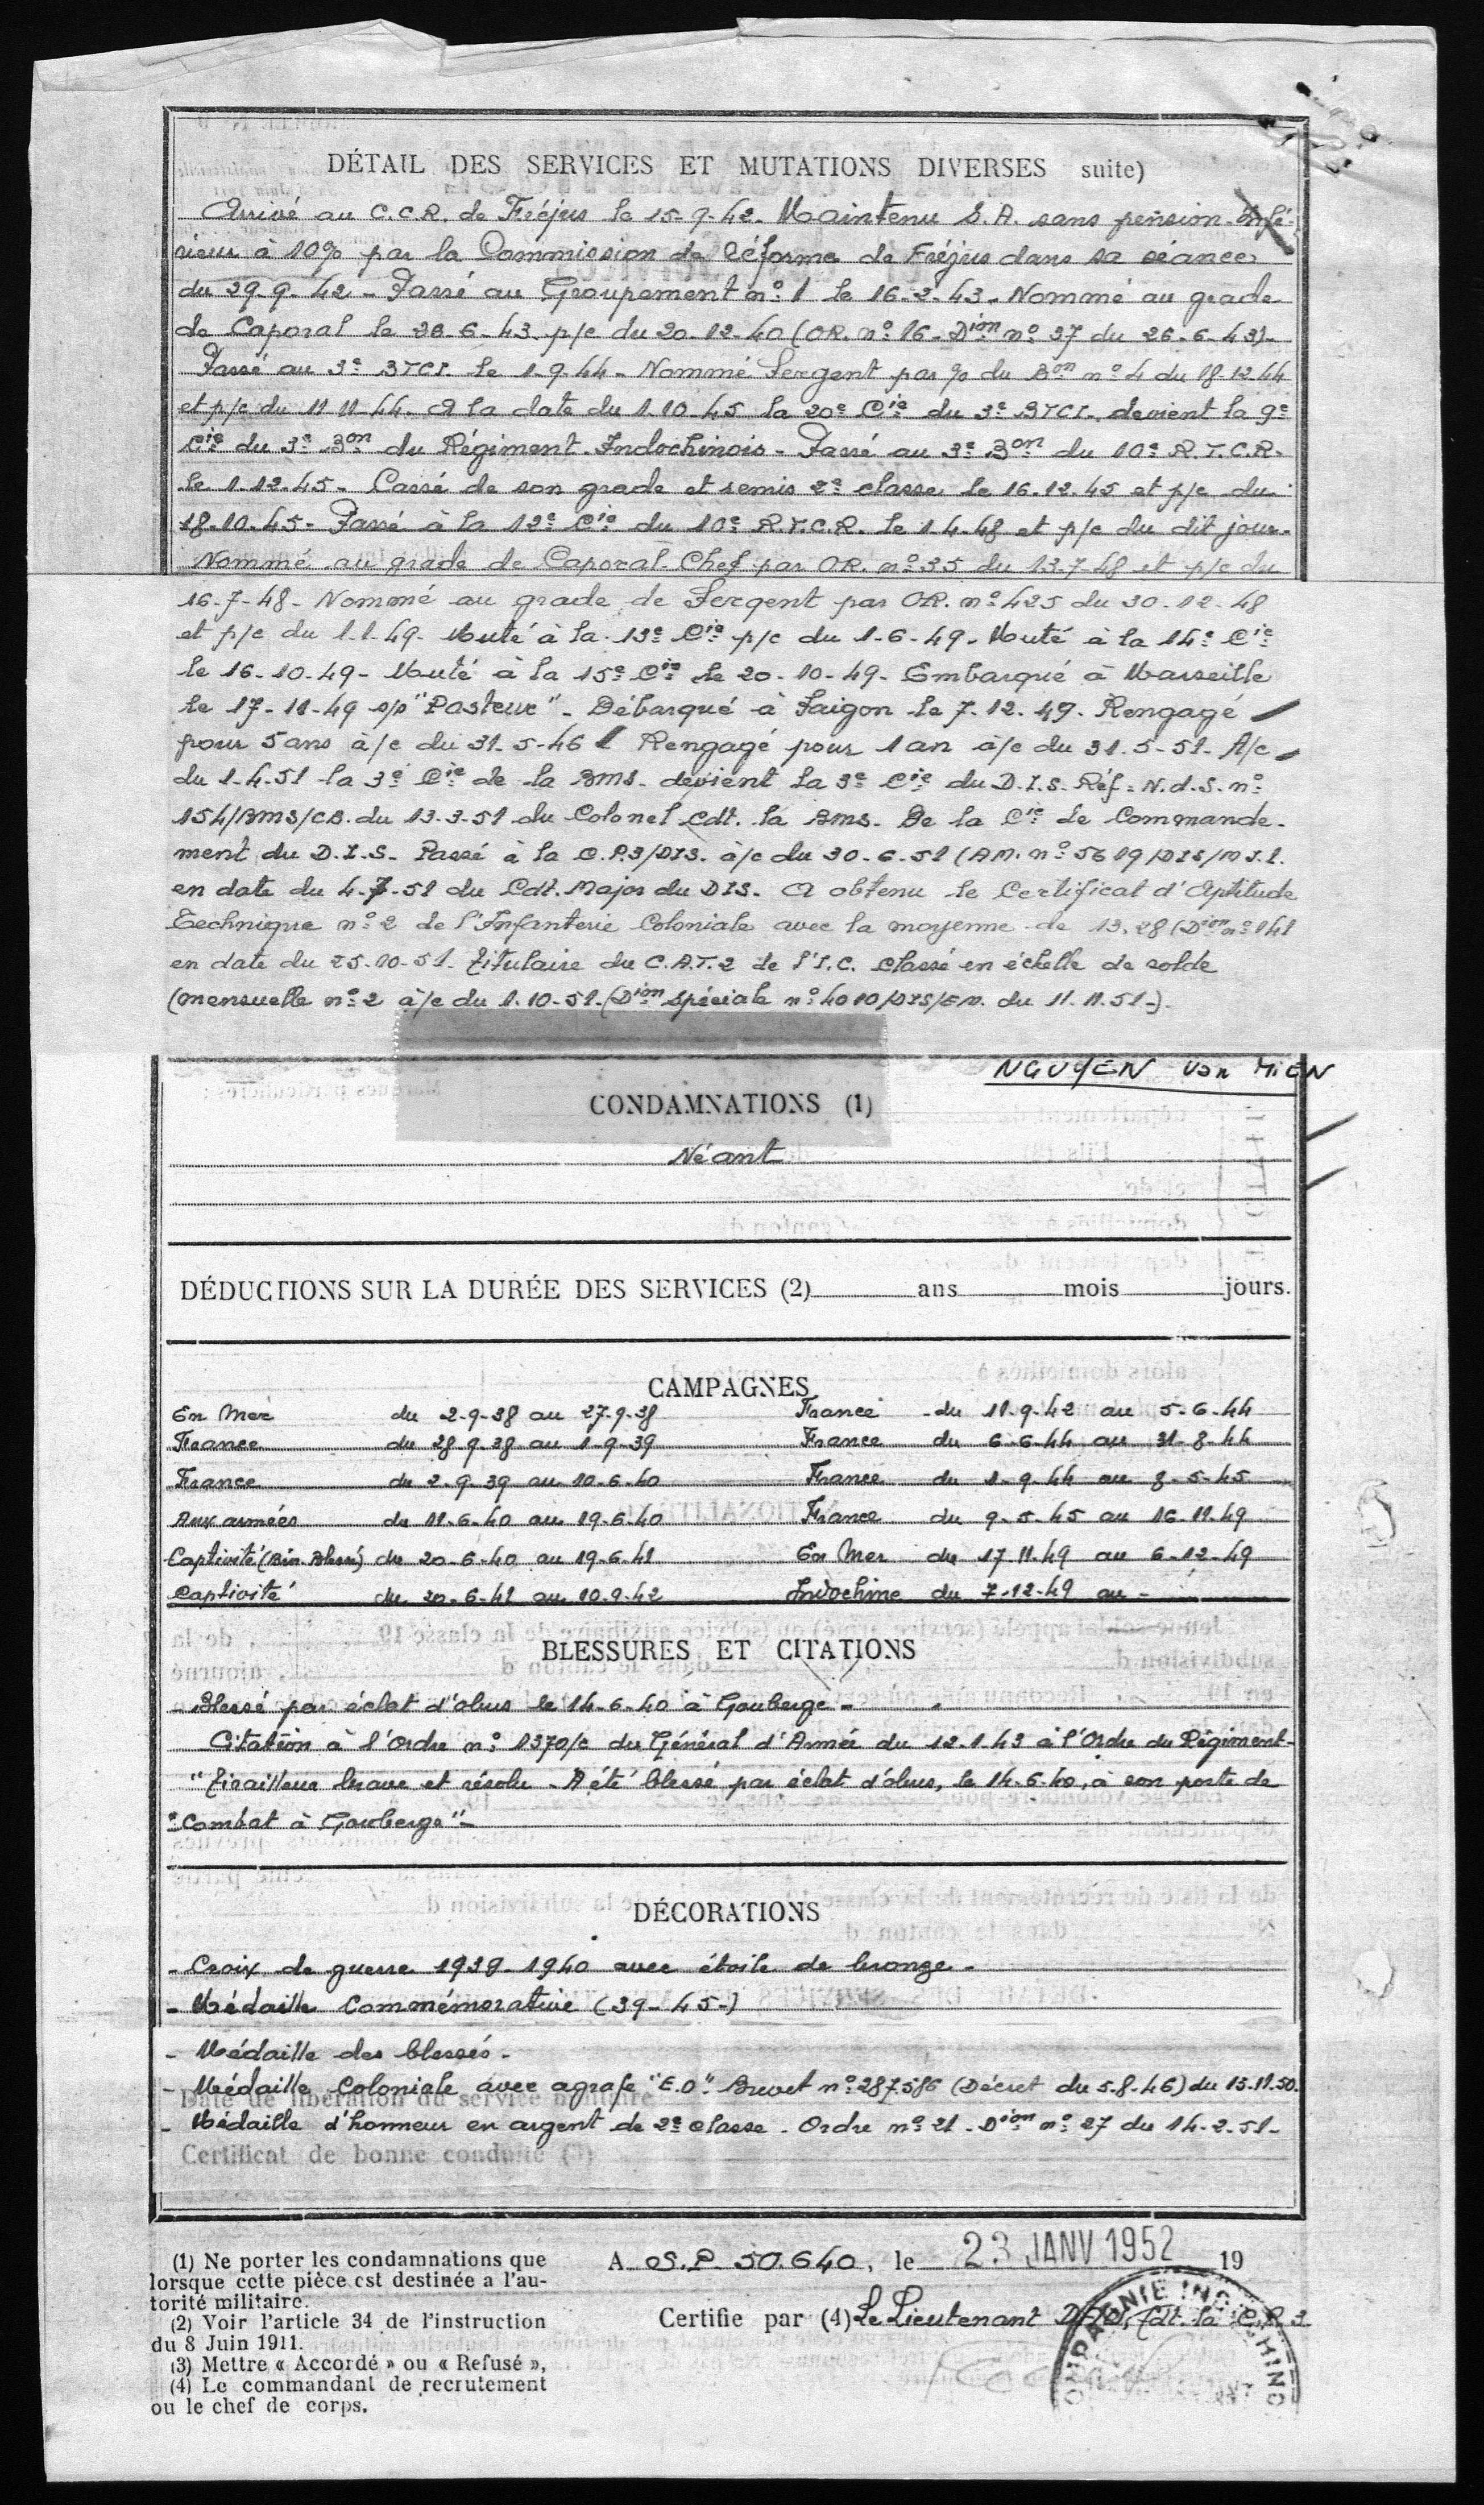 DÉTAIL DES SERVICES ET MUTATIONS DIVERSES suite)
Arrivé au C.C.R. de Fréjus le 15-9-42. Maintenu S.A. sans pension. Infé-
rieur à 10% par la Commission de Réforme de Fréjus dans sa séance
du 29-9-42 - Passé au Groupement nº 1 le 16-2-43. Nommé au grade
de Caporal le 28-6-43. p/c du 20-12-40 (OR. nº 16 - Dion nº 37 du 26-6-43)-
Passé au 3e BTCI. le 1-9-44 - Nommé Sergent par % du Bon nº 4 du 18.12.44
et p/c du 11.11.44. A la date du 1.10.45 la 20e Cie du 3e BTCI. devient la 9e
Cie du 3e Bon du Régiment Indochinois - Passé au 3e Bon du 10e R.T.C.R.
le 1.12.45 - Cassé de son grade et remis 2e classe le 16.12.45 et p/c du
18-10-45 - Passé à la 12e Cie du 10e R.T.C.R. le 1-4-48 et p/c du dit jour.
Nommé au grade de Caporal-Chef par OR. nº 35 du 13-7-48 et p/c du
16-7-48 - Nommé au grade de Sergent par OR. nº 425 du 30-12-48
et p/c du 1-1-49. Muté à la 13e Cie p/c du 1-6-49. Muté à la 14e Cie
le 16-10-49 - Muté à la 15e Cie le 20-10-49. Embarqué à Marseille
le 17-11-49 s/p "Pasteur" - Débarqué à Saigon le 7.12.49. Rengagé
pour 5 ans à/c du 31-5-46 Rengagé pour 1 an à/c du 31.5-51 - A/c
du 1-4-51 la 3e Cie de la BMS. devient la 3e Cie du D.I.S. Réf = N.d.S. nº
154/BMS/CB. du 13-3-51 du Colonel Cdt. la BMS. De la Cie de Commande-
ment du D.I.S. Passé à la C.P.3/DIS. à/c du 30-6-51 (AM. nº 5619/DIS/MJ.1.
en date du 4-7-51 du Cdt. Major du DIS. A obtenu le Certificat d'Aptitude
Technique nº 2 de l'Infanterie Coloniale avec la moyenne de 13,28 (Dion nº 141
en date du 25-10-51. Titulaire du C.A.T.2 de l'I.C. classé en échelle de solde
(mensuelle nº 2 à/c du 1.10-51-(Dion spéciale nº 4010/DIS/EM. du 11.11.51-).
NGUYEN Van MIEN
CONDAMNATIONS (1)
Néant
DÉDUCTIONS SUR LA DURÉE DES SERVICES (2) ans mois jours.
CAMPAGNES
En Mer du 2-9-38 au 27-9-38 France du 11-9-42 au 5-6-44
France du 28-9-38 au 1-9-39 France du 6-6-44 au 31-8-44
France du 2-9-39 au 10-6-40 France du 1-9-44 au 8-5-45
Aux armées du 11-6-40 au 19-6-40 France du 9-5-45 au 16-11-49
Captivité (Bin. Blessé) du 20-6-40 au 19-6-41 En Mer du 17-11-49 au 6-12-49
Captivité du 20-6-41 au 10-9-42 Indochine du 7-12-49 au -
BLESSURES ET CITATIONS
- Blessé par éclat d'obus le 14-6-40 à Gouberge -
Citation à l'Ordre nº 1370/c du Général d'Armée du 12-1-43 à l'Ordre du Régiment-
"Tirailleur brave et résolu - A été blessé par éclat d'obus, le 14-6-40, à son poste de
"Combat à Gouberge"-
DÉCORATIONS
- Croix de guerre 1939-1940 avec étoile de bronze -
- Médaille Commémorative (39-45-)
- Médaille des blessés -
- Médaille Coloniale avec agrafe "E.O". Brevet nº 287.586 (Décret du 5-8-46) du 15.11.50.
Date de libération du service militaire
- Médaille d'honneur en argent de 2e classe - Ordre nº 21 - Dion nº 27 du 14-2-51-
Certificat de bonne conduite (3)
(1) Ne porter les condamnations que
lorsque cette pièce est destinée a l'au-
torité militaire.
(2) Voir l'article 34 de l'instruction
du 8 Juin 1911.
(3) Mettre « Accordé » ou « Refusé »,
(4) Le commandant de recrutement
ou le chef de corps.
A S.P. 50.640, le 23 JANV 1952 19
Certifie par (4) Le Lieutenant Cdt. la C.P.3